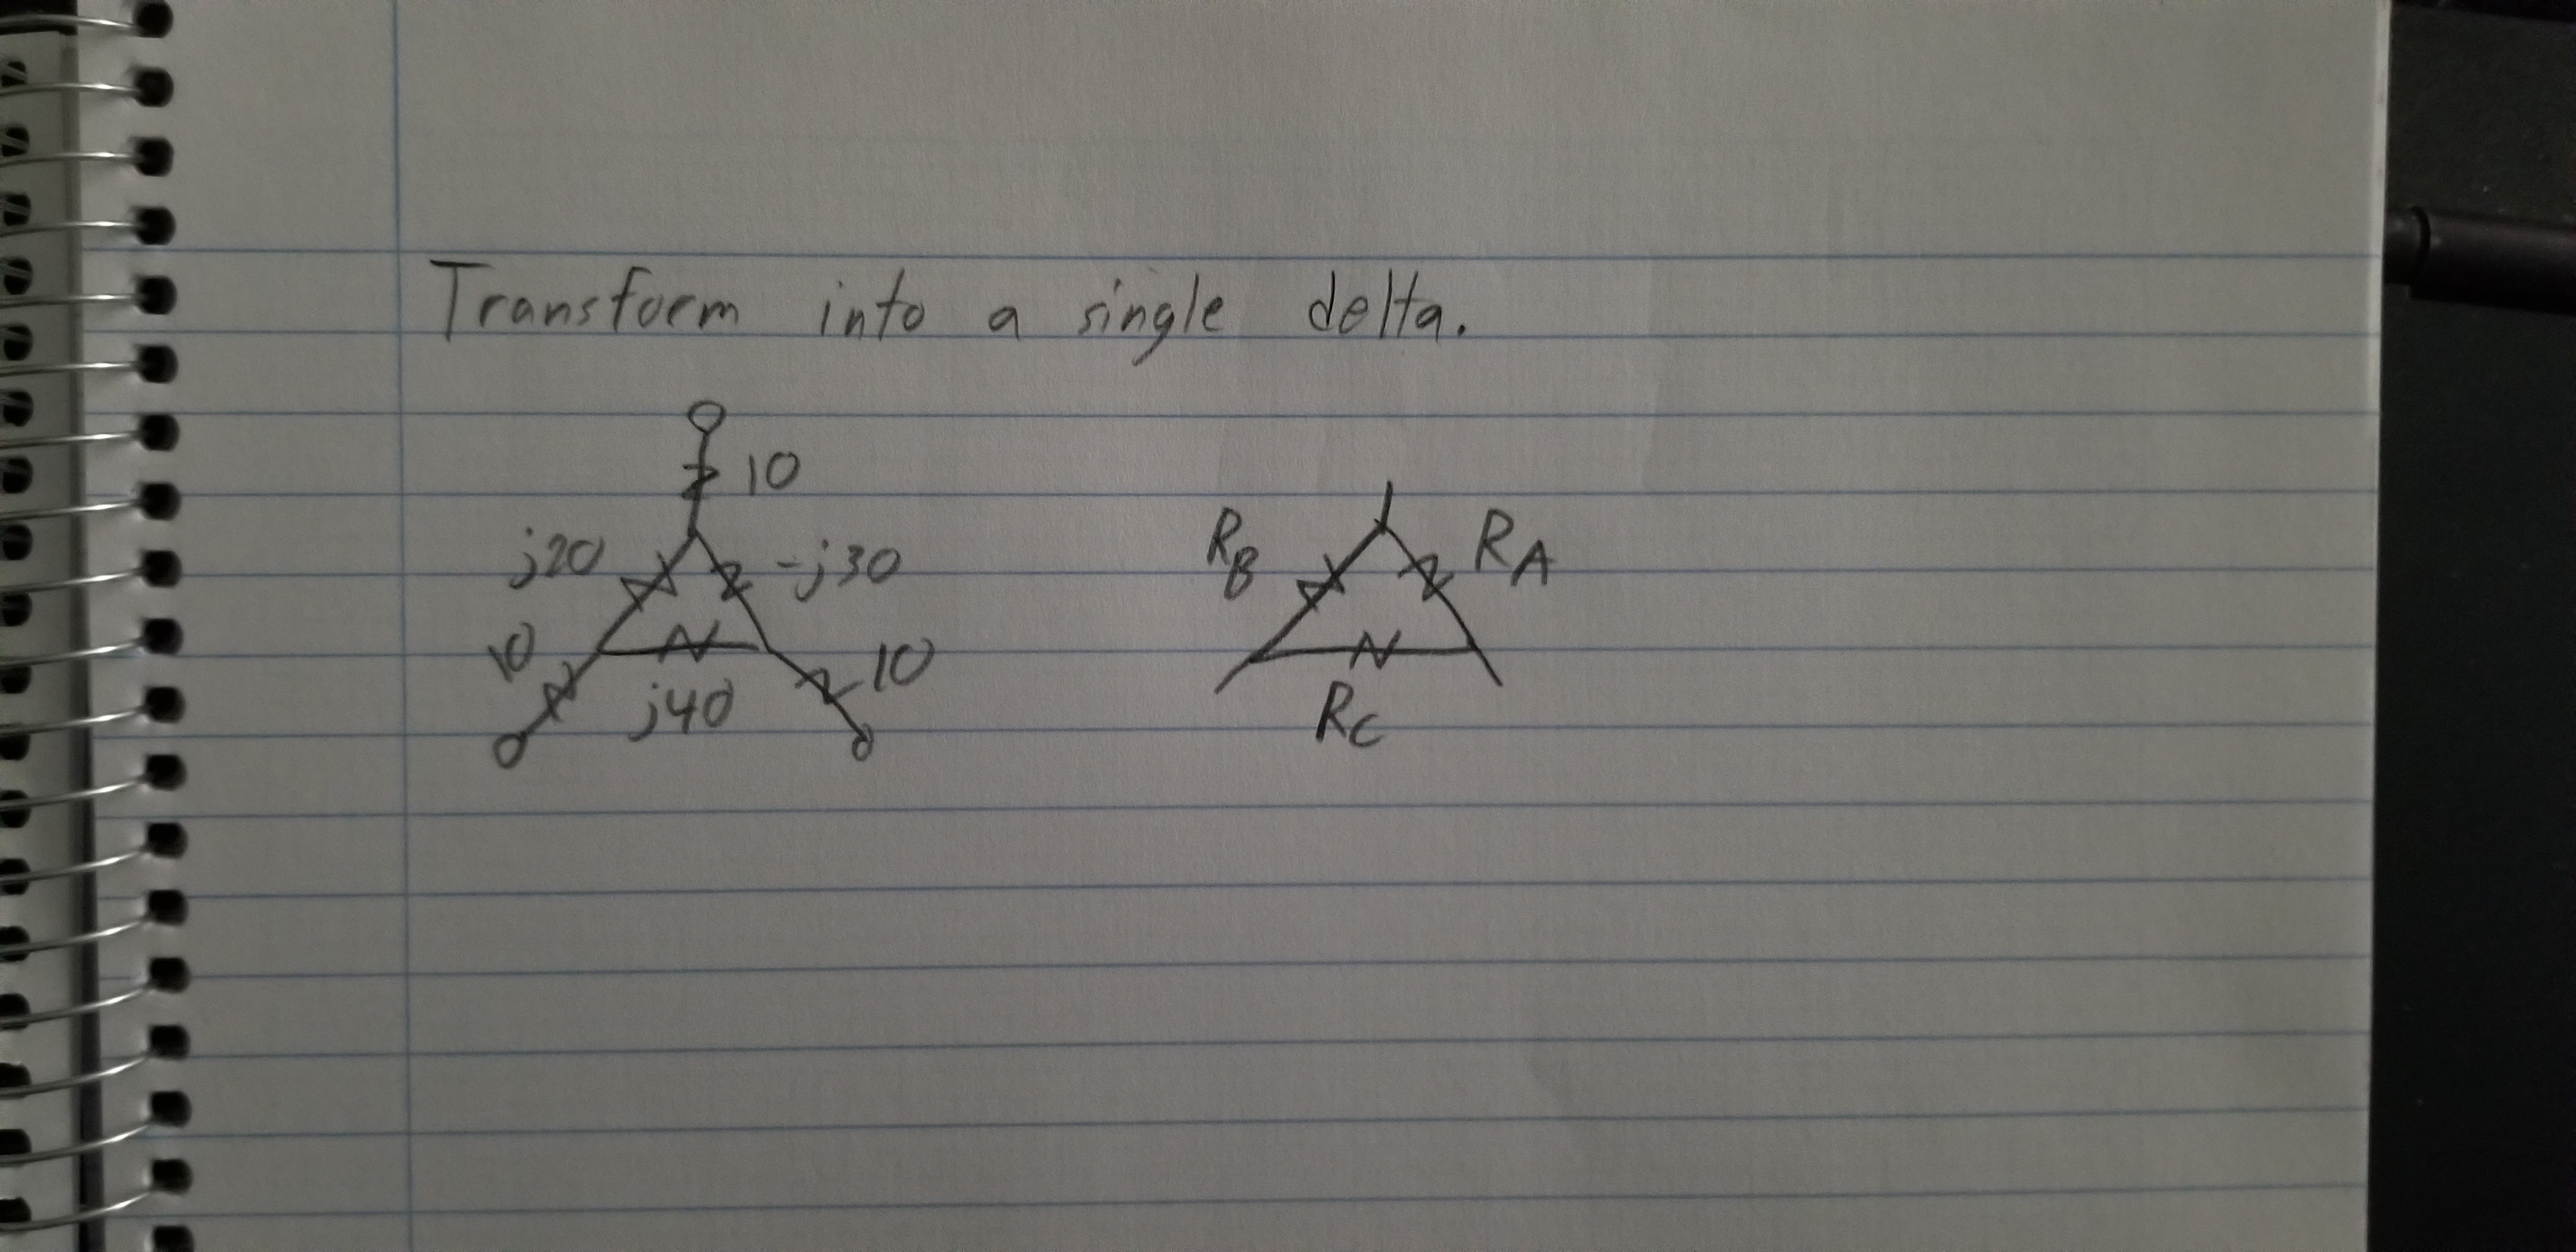 Transform into a single delta.
10
j20 -j30
10 j40 10
R_B R_A
R_C